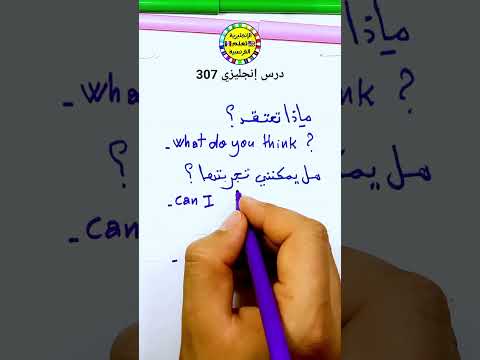 الإنجليزية
نتعلم
الفرنسية
درس إنجليزي 307
ماذا تعتقد ؟
- what do you think ?
هل يمكنني تجربتها ؟
- can I
-